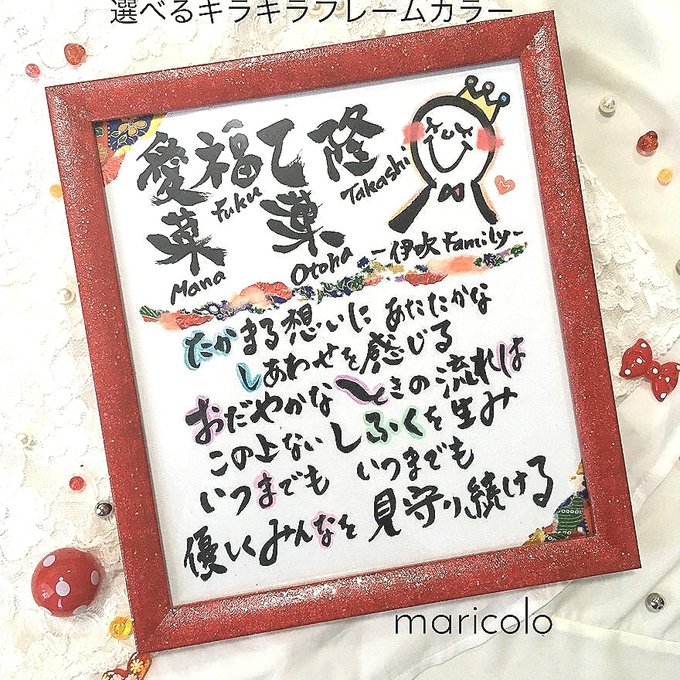 選べるキラキラフレームカラー
愛福乙隆
菜 Fuku 菜 Takashi
Mana Otoha ~伊吹Family~
たかまる想いにあたたかな
しあわせを感じる
おだやかなときの流れは
この上ないしふくを生み
いつまでも いつまでも
優しくみんなを見守り続ける
maricolo